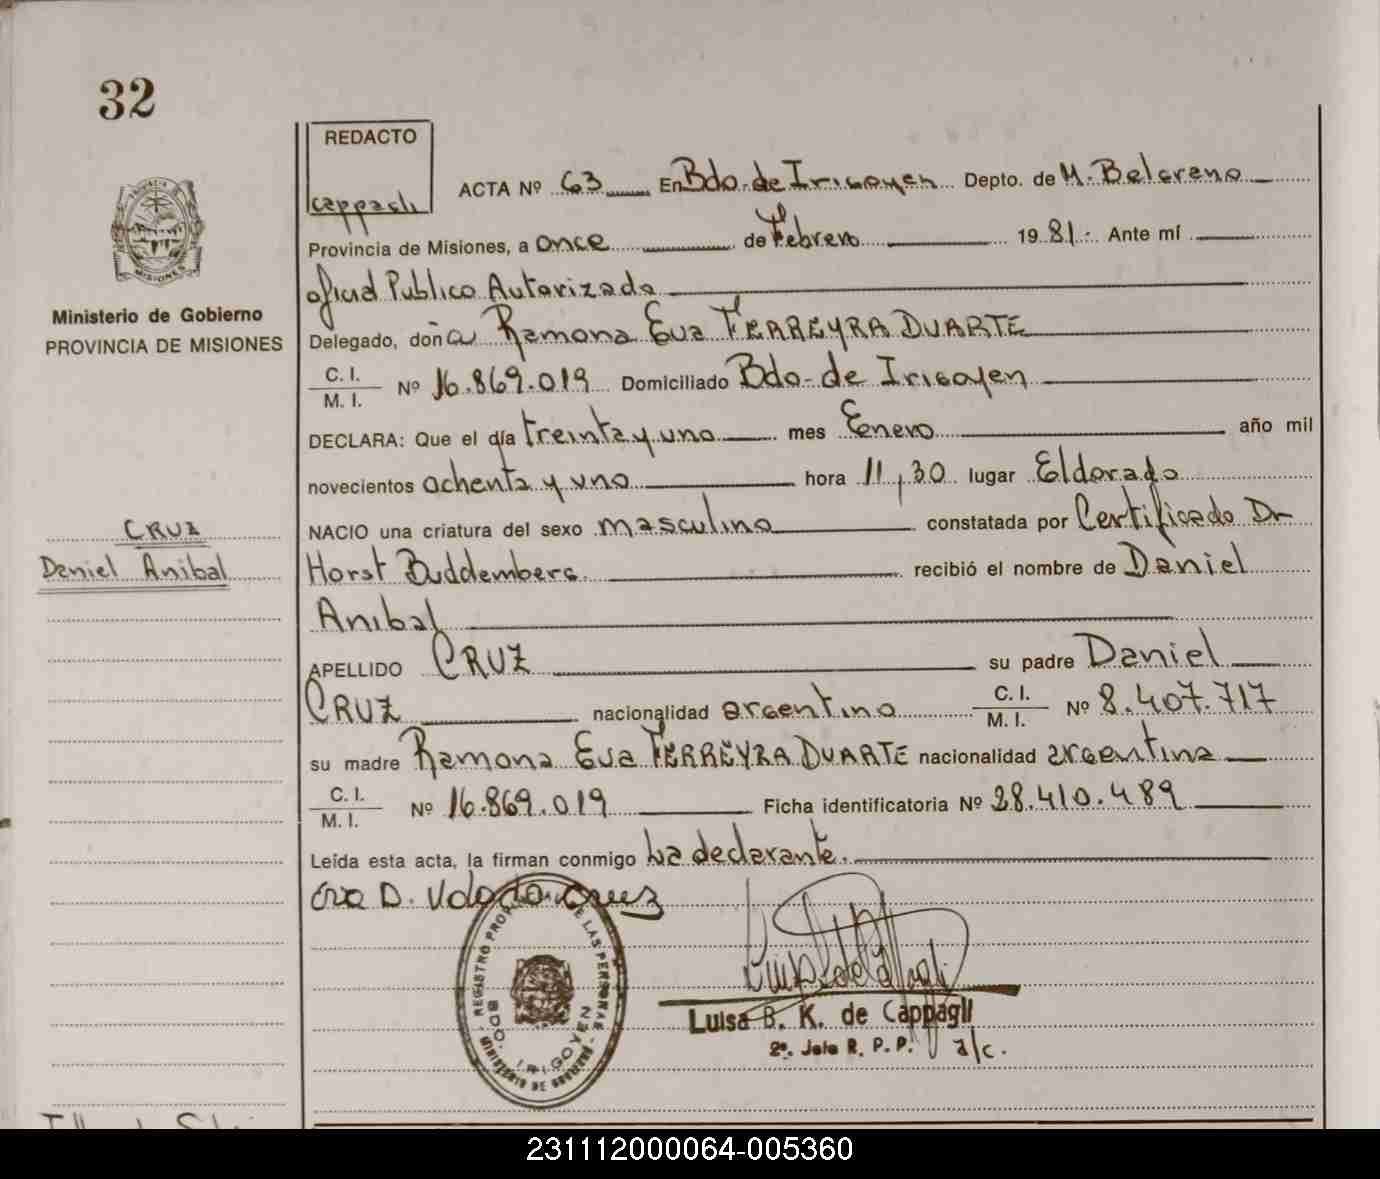 32
REDACTO
Cappagli
ACTA Nº 63 En Bdo. de Irigoyen Depto. de M. Belgrano
Provincia de Misiones, a once de Febrero 1981. Ante mí
oficial Publico Autorizado
Delegado, doña Ramona Eva FERREYRA DUARTE
C. I.
M. I. Nº 16.869.019 Domiciliado Bdo. de Irigoyen
DECLARA: Que el día treinta y uno mes Enero año mil
novecientos ochenta y uno hora 11,30 lugar Eldorado
NACIO una criatura del sexo masculino constatada por Certificado Dr
Horst Buddemberg recibió el nombre de Daniel
Anibal
APELLIDO CRUZ su padre Daniel
CRUZ nacionalidad argentino C. I.
M. I. Nº 8.407.717
su madre Ramona Eva FERREYRA DUARTE nacionalidad argentina
C. I.
M. I. Nº 16.869.019 Ficha identificatoria Nº 28.410.489
Leída esta acta, la firman conmigo La declarante.
Eva D. Vda de Cruz
REGISTRO DE LAS PERSONAS
MINISTERIO DE
BDO. IRIGOYEN
Luisa B. K. de Cappagli
2º. Jefe R. P. P. a/c.
PROVINCIA DE MISIONES
Ministerio de Gobierno
PROVINCIA DE MISIONES
CRUZ
Daniel Anibal
231112000064-005360